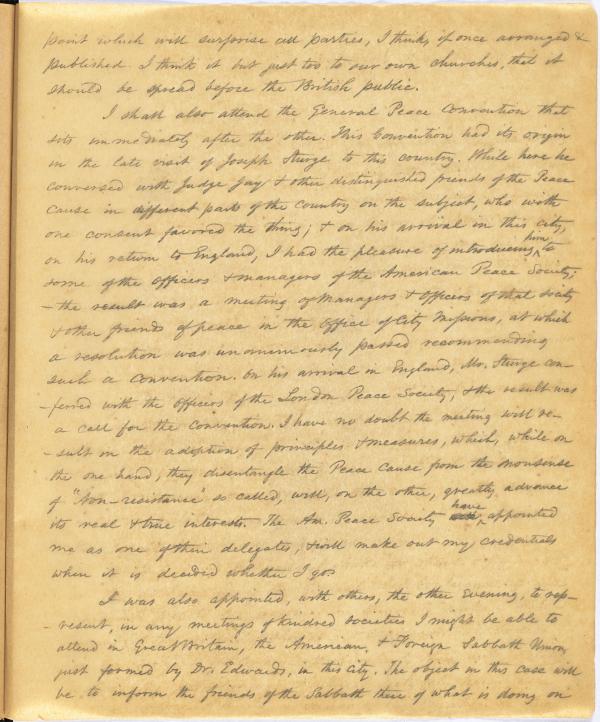 point which will surprise all parties, I think, if once arranged &
published. I think it but just too to our own churches, that it
should be spread before the British public.
I shall also attend the General Peace Convention that
sits immediately after the other. This Convention had its origin
in the late visit of Joseph Sturge to this country. While here he
conversed with Judge Jay & other distinguished friends of the Peace
cause in different parts of the country on the subject, who with
one consent favored the thing; & on his arrival in this city,
on his return to England, I had the pleasure of introducing him to
some of the officers & managers of the American Peace Society;
- the result was a meeting of managers & officers of that society
& other friends of peace in the office of City Missions, at which
a resolution was unanimously passed recommending
such a convention. On his arrival in England, Mr. Sturge con-
-ferred with the officers of the London Peace Society, & the result was
a call for the convention. I have no doubt the meeting will re-
-sult in the adoption of principles & measures, which, while on
the one hand, they disentangle the Peace cause from the nonsense
of "Non-resistance" so called, will, on the other, greatly advance
its real & true interests. The Am. Peace Society have appointed
me as one of their delegates, & will make out my credentials
when it is decided whether I go.
I was also appointed, with others, the other evening, to rep-
-resent, in any meetings of kindred societies I might be able to
attend in Great Britain, the American & Foreign Sabbath Union,
just formed by Dr. Edwards, in this city. The object in this case will
be to inform the friends of the Sabbath there of what is doing on